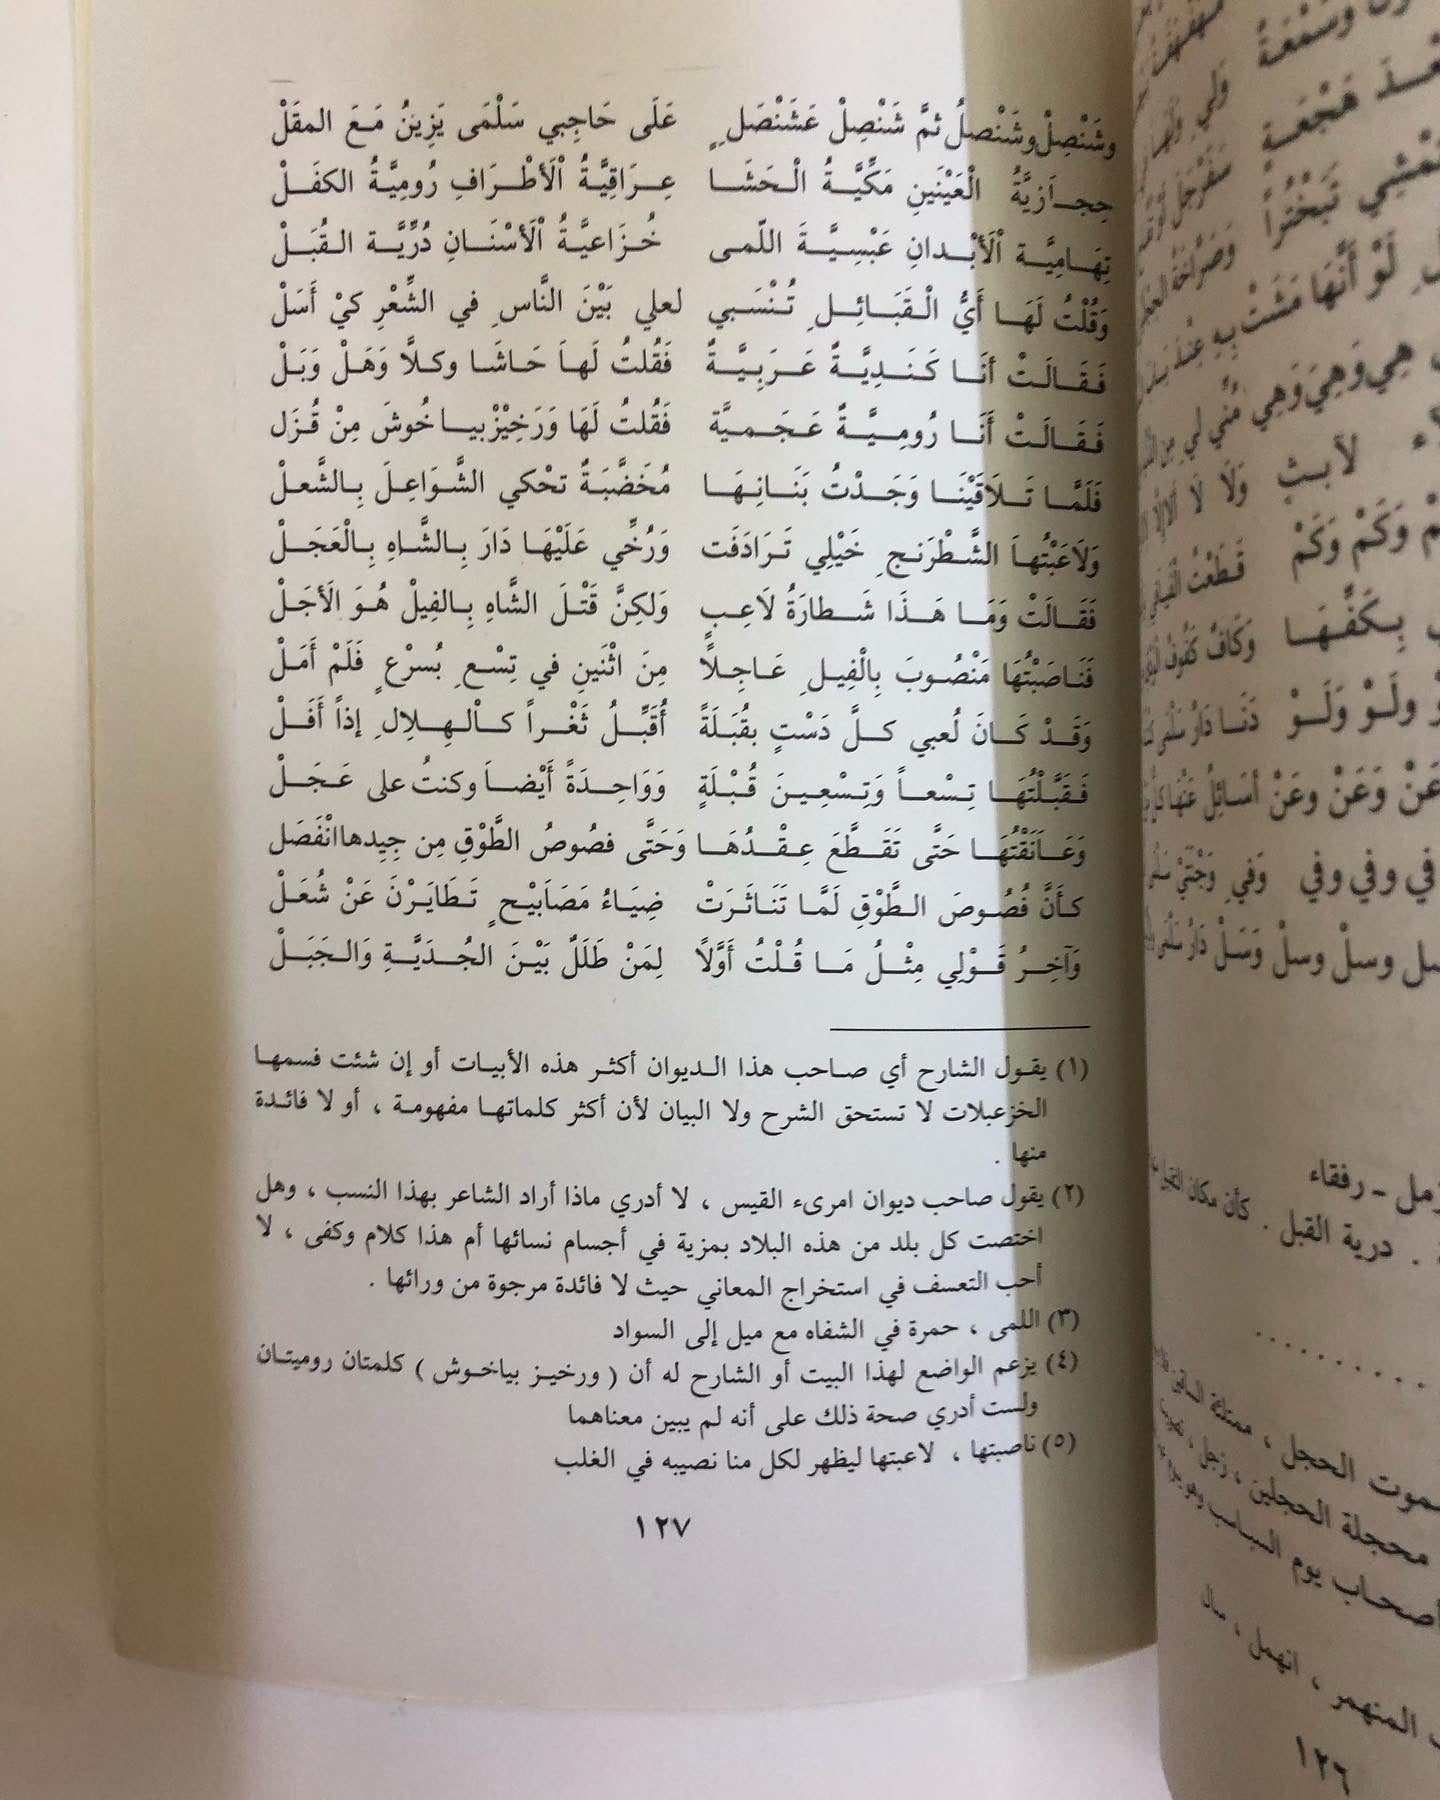 وشَنْصِلْ وشَنْصلُ ثمَّ شَنْصِلْ عَشَنْصَلٍ عَلَى حَاجِبي سَلْمَى يَزِينُ مَعَ المقَلْ
حِجَازِيَّةُ الْعَيْنَينِ مَكِّيَّةُ الْحَشَا عِرَاقِيَّةُ الْأطْرَافِ رُومِيَّةُ الكفَلْ
تِهَامِيَّة الْأبْدانِ عَبْسِيَّةَ اللّمى خُزَاعيَّةُ الْأسْنَانِ دُرِّيَّة القُبَلْ
وَقُلْتُ لَهَا أَيُّ الْقَبَائِلِ تُنْسَبي لعلي بَيْنَ النَّاسِ في الشِّعْرِ كيْ أَسَلْ
فَقَالَتْ أنَا كَنَدِيَّةٌ عَرَبِيَّةٌ فَقُلتُ لَهاَ حَاشَا وكلَّا وَهَلْ وَبَلْ
فَقَالَتْ أَنَا رُومِيَّةٌ عَجَميَّة فَقُلتُ لَهَا وَرَخِيْزْ بيا خُوشَ مِنْ قُزَل
فَلَمَّا تَلَاقَيْنَا وَجَدْتُ بَنَانِهَا مُخَضَّبَةٌ تحْكي الشَّوَاعِلَ بِالشَّعلْ
وَلَاعَبْتُهاَ الشَّطْرَنج خَيْلِي تَرَادَفَت وَرُخِّي عَلَيْهَا دَارَ بِالشَّاهِ بِالْعَجَلْ
فَقَالَتْ وَمَا هَذَا شَطارَةُ لَاعِبٍ وَلكِنَّ قَتْلَ الشَّاهِ بِالفِيلْ هُوَ الأَجَلْ
فَنَاصَبْتُهَا مَنْصُوبَ بِالْفِيلِ عَاجِلاً مِنَ اثْنَينِ في تِسْعٍ بُسرْعٍ فَلَمْ أَمَلْ
وَقَدْ كَانَ لُعبي كلَّ دَسْتٍ بقُبلَةً أُقَبِّلُ ثَغْراً كالْهِلِال إِذاً أَفَلْ
فَقَبَّلْتُهَا تِسْعاً وَتِسْعِينَ قُبْلَةٍ وَوَاحِدَةً أَيْضاَ وكنتُ على عَجَلْ
وَعَانَقْتُهَا حَتَّى تَقَطَّعَ عِقْدُهَا وَحَتَّى فصُوصُ الطَّوْقِ مِن جِيِدها انْفَصَل
كأَنَّ فُصُوصَ الطَّوْقِ لَمَّا تَنَاثَرَتْ ضِيَاءُ مَصَابَيْحٍ تَطَايَرْنَ عَنْ شُعَلْ
وَآخِرُ قَوْلِي مِثْلُ مَا قُلْتُ أَوَّلاً لِمَنْ طَلَلٌ بَيْنَ الجُدَيَّةِ وَالجَبَلْ
(١) يقول الشارح أي صاحب هذا الديوان أكثر هذه الأبيات أو إن شئت فسمها
الخزعبلات لا تستحق الشرح ولا البيان لأن أكثر كلماتها مفهومة ، أو لا فائدة
منها .
(٢) يقول صاحب ديوان امرىء القيس ، لا أدري ماذا أراد الشاعر بهذا النسب ، وهل
اختصت كل بلد من هذه البلاد بمزية في أجسام نسائها أم هذا كلام وكفى ، لا
أحب التعسف في استخراج المعاني حيث لا فائدة مرجوة من ورائها .
(٣) اللمى ، حمرة في الشفاه مع ميل إلى السواد
(٤) يزعم الواضع لهذا البيت أو الشارح له أن ( ورخيز بياخوش ) كلمتان روميتان
ولست أدري صحة ذلك على أنه لم يبين معناهما
(٥) ناصبتها ، لاعبتها ليظهر لكل منا نصيبه في الغلب
١٢٧
وَسُمْعَةً
هَجْعَةٍ
تَمْشِي تَبَخْتُراً
لَوْ أَنَّهَا مَشَتْ بِهِ
هِي وَهِيَ وَهِي مُنًى لي مِن
لابثٍ وَلَا لَا
وَكَمْ وَكَمْ قَطَعْتُ الْفَيافي
بِكَفِّهَا وَكَافٌ
ولَوْ وَلَوْ دَنَا دَارُ سَلْمى
عَنْ وَعَنْ وعَنْ أسَائِلُ عَنْها
في وفي وفي وَفي وَجْنَتَيْ سَلْمى
وسلْ وسلْ وَسَلْ دَارُ سَلْمى
رفقاء
درية القبل . كأن مكان
الحجل ،
محجلة الحجلين ، زجل
أصحاب يوم
المنهمر ، انهمل ،
١٢٦